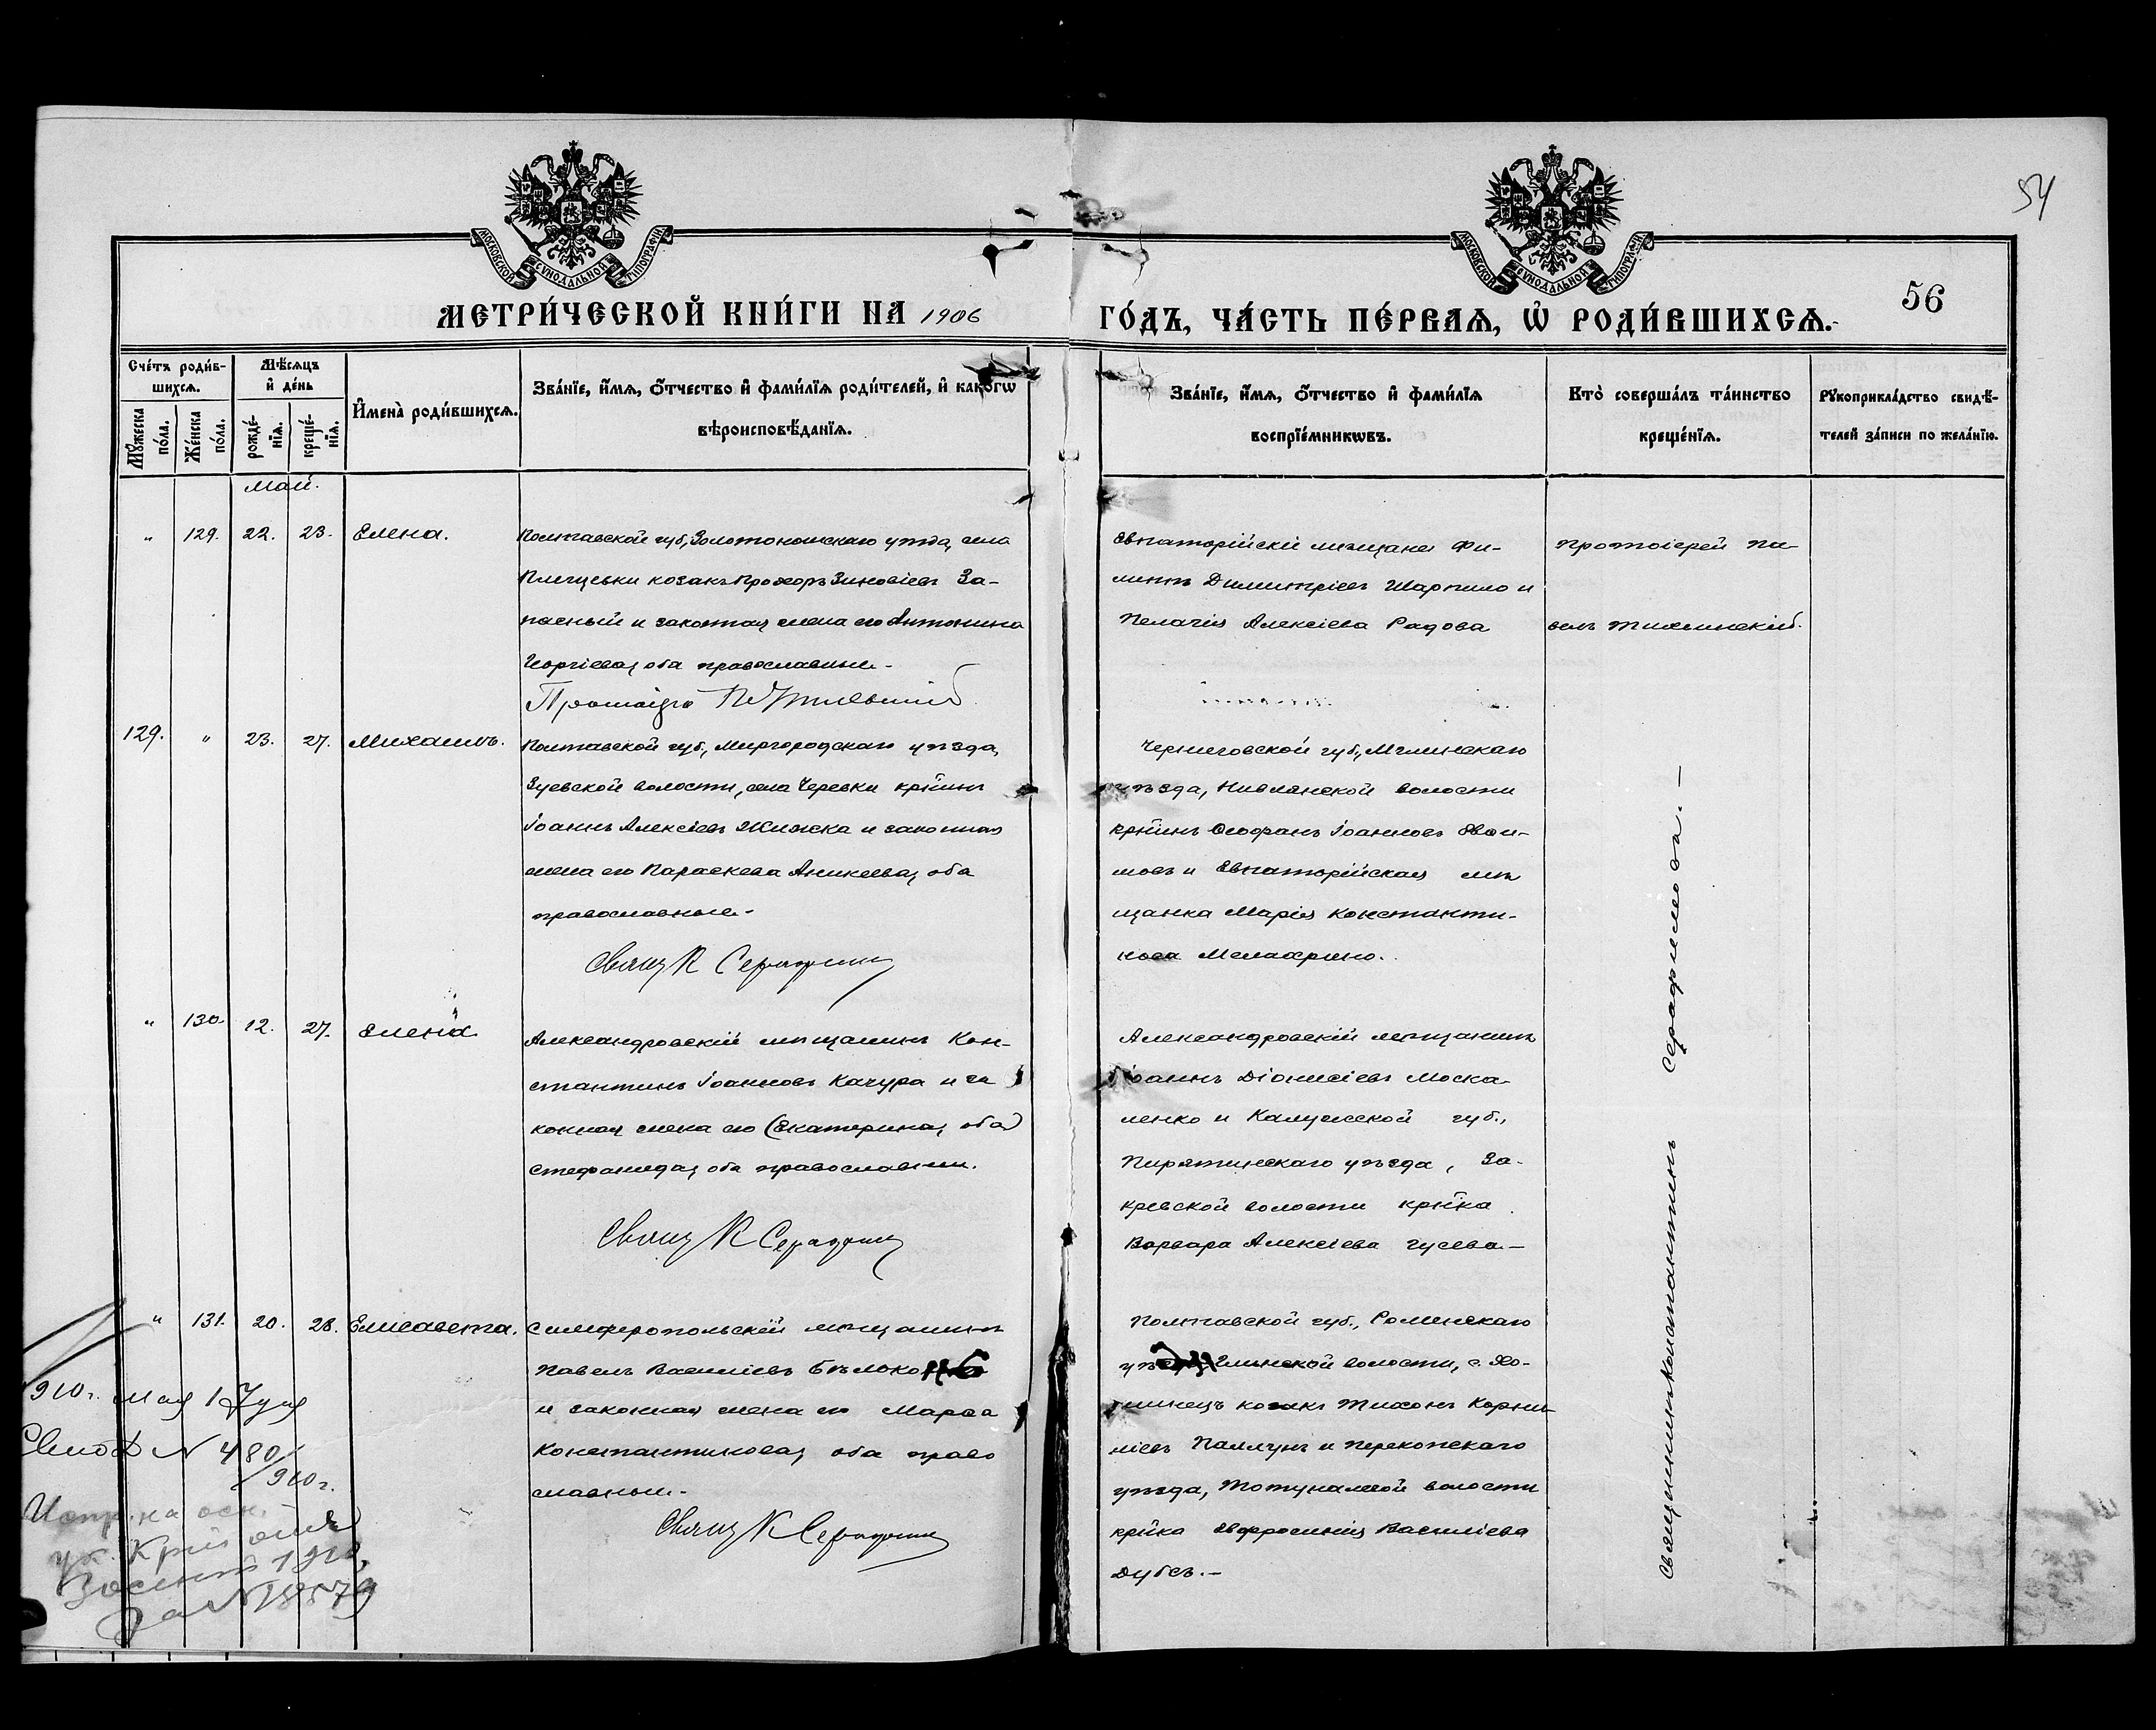 54
МОСКОВСКОЙ СУНОДАЛЬНОЙ ТИПОГРАФІИ
МОСКОВСКОЙ СУНОДАЛЬНОЙ ТИПОГРАФІИ
56
МЕТРИ́ЧЕСКОЙ КНИ́ГИ НА 1906
ГО́ДЪ, ЧА́СТЬ ПЕ́РВАѦ, Ѡ҆ РОДИ́ВШИХСѦ.
Сче́тъ роди́в-
шихсѧ.
Мѣ́сѧцъ
и҆ де́нь
Мꙋ́жеска
по́ла.
Же́нска
по́ла.
рожде́-
нїѧ.
креще́-
нїѧ.
И҆мена̀ роди́вшихсѧ.
Зва́нїе, и҆́мѧ, ѻ҆́тчество и҆ фами́лїѧ роди́телей, и҆ како́гѡ
вѣроисповѣ́данїѧ.
Зва́нїе, и҆́мѧ, ѻ҆́тчество и҆ фами́лїѧ
воспрїе́мникѡвъ.
Кто̀ соверша́лъ та́инство
креще́нїѧ.
Рꙋкоприкла́дство свидѣ́-
телей за́писи по жела́нїю.
Май.
" 129. 22. 23. Елена.
Полтавской губ., Золотоношскаго уѣзда, села
козакъ Прохоръ Зиновіевъ За-
пасный и законная жена его Антонина
Георгіева, оба православные.
Протоіерей
Евпаторійскіе мѣщане Фи-
липпъ Димитріевъ Шарпило и
Пелагія Алексіева Радова
Протоіерей Па-
велъ Тихвинскій.
129. " 23. 27. Михаилъ.
Полтавской губ., Миргородскаго уѣзда,
Зуевской волости, села Черевки кр̃нинъ
Іоаннъ Алексіевъ Жижка и законная
жена его Параскева Аникеева, оба
православные.
Свящ К Серафимъ
Черниговской губ., Мглинскаго
уѣзда, Нивлянской волости
кр̃нинъ Ѳеофанъ Іоанновъ
и Евпаторійская мѣ
щанка Марія Константи-
нова
" 130. 12. 27. Елена
Александровскій мѣщанинъ Кон-
стантинъ Іоанновъ Качура и за
конная жена его (Екатерина, оба)
Стефанида, оба православные.
Свящ К Серафимъ
Александровскій мѣщанинъ
Іоаннъ Діонисіевъ Моска-
ленко и Калужской губ.,
Пирятинскаго уѣзда, За-
кревской волости кр̃нка
Варвара Алексіева Гусева.—
" 131. 20. 28. Елисавета.
Симферопольскій мѣщанинъ
Павелъ Василіевъ Бѣлоко
и законная жена его Марѳа
Константинова, оба право
славные.
Свящ К Серафимъ
Полтавской губ., Роменскаго
Глинской волости, с.
козакъ Тихонъ Корни
ліевъ и Перекопскаго
уѣзда, волости
кр̃нка Евфросинія Василіева
Дубъ.—
Священникъ Константинъ Серафимовъ.—
910 г. мая 17 дня
N 480
/910 г.
Испр. на осн.
1910
за N 18579